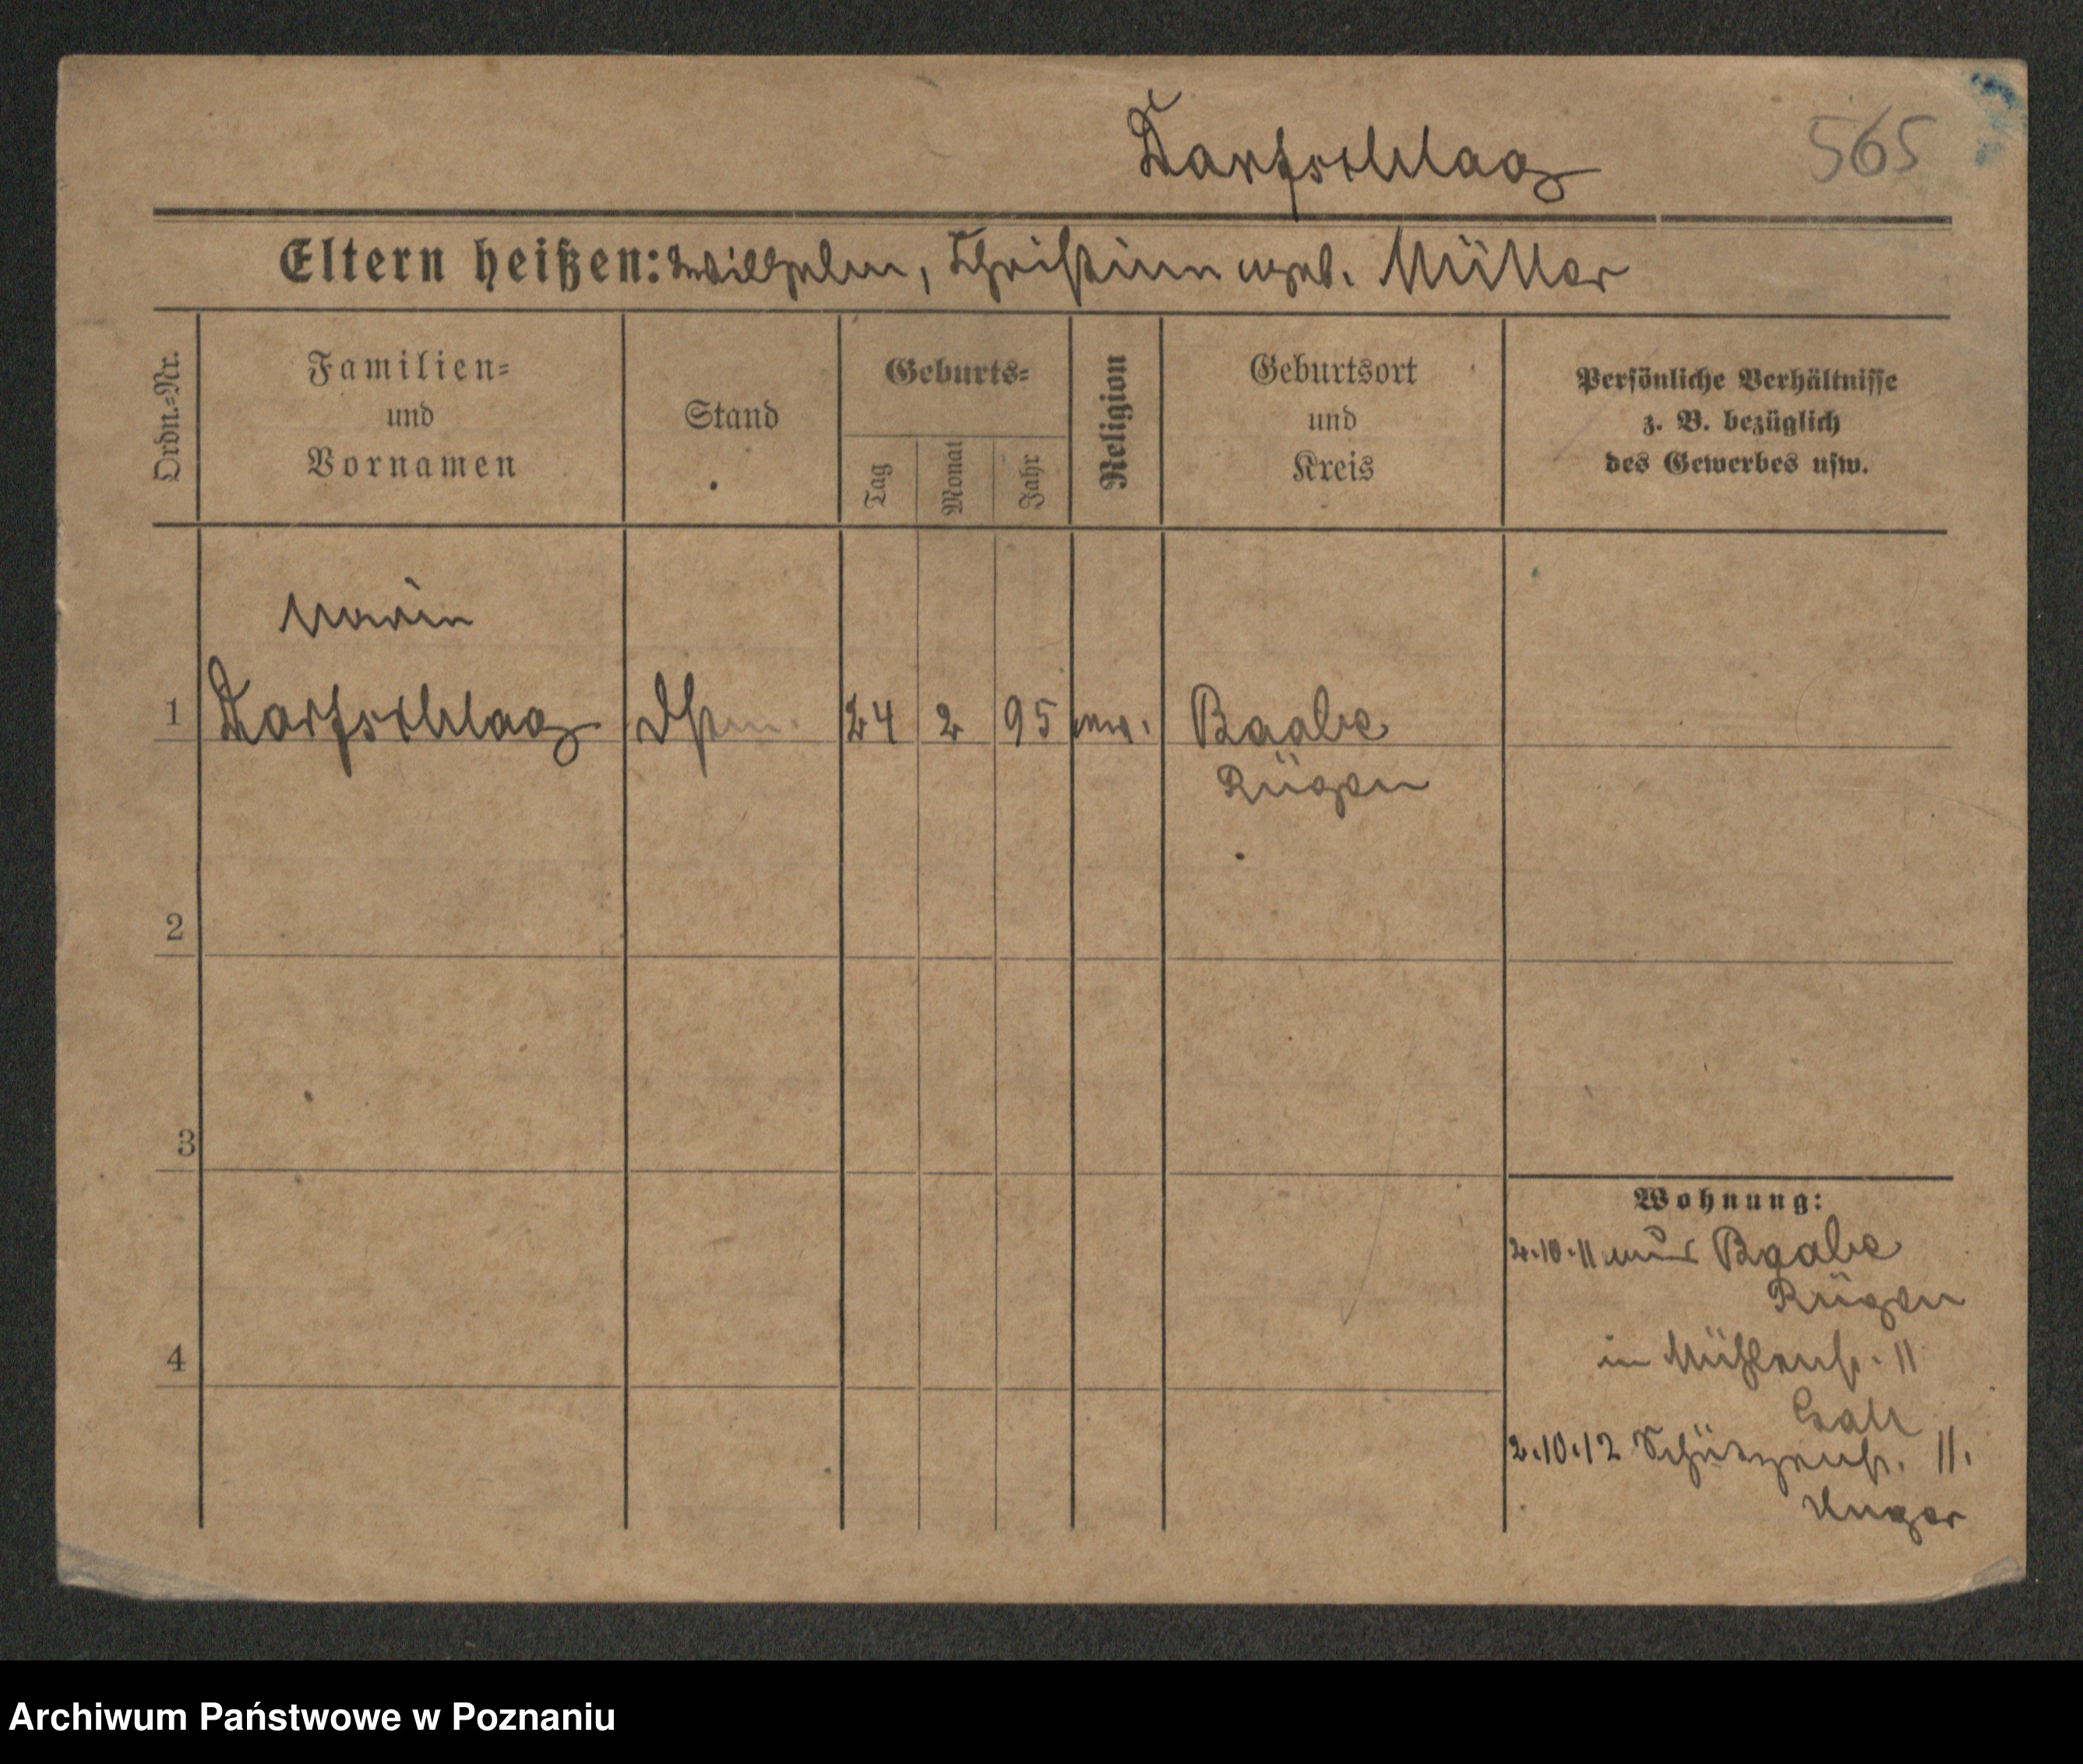 Darfschlag 565
Eltern heißen: Wilhelm, Christine geb. Müller
Ordn.-Nr.
Familien-
und
Vornamen
Stand
Geburts-
Tag
Monat
Jahr
Religion
Geburtsort
und
Kreis
Persönliche Verhältnisse
z. B. bezüglich
des Gewerbes usw.
Marie
1 Darfschlag 24 2 95 ev. Baabe
Rügen
2
3
4
Wohnung:
2.10.11 aus Baabe
Rügen
in Mühlenstr. 11
2.10.12 Schützenstr. 11.
Unger
Archiwum Państwowe w Poznaniu